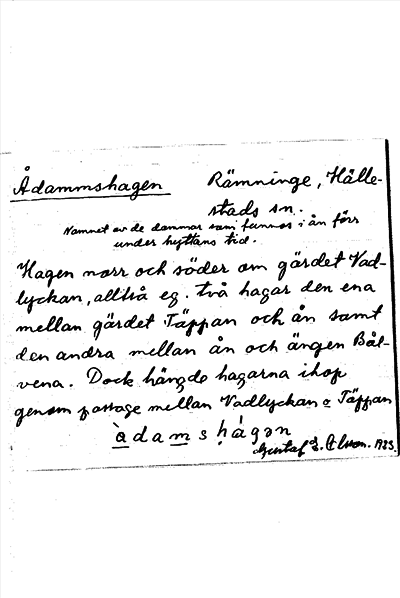 Ådammshagen Rämninge, Hälle-
stads sn.
Namnet av de dammar som fannos i ån förr
under hyttans tid.
Hagen norr och söder om gärdet Vad-
lyckan, alltså eg. två hagar den ena
mellan gärdet Täppan och ån samt
den andra mellan ån och ängen Bål-
vena. Dock hängde hagarna ihop
genom passage mellan Vadlyckan o Täppan
Gustaf 1933.